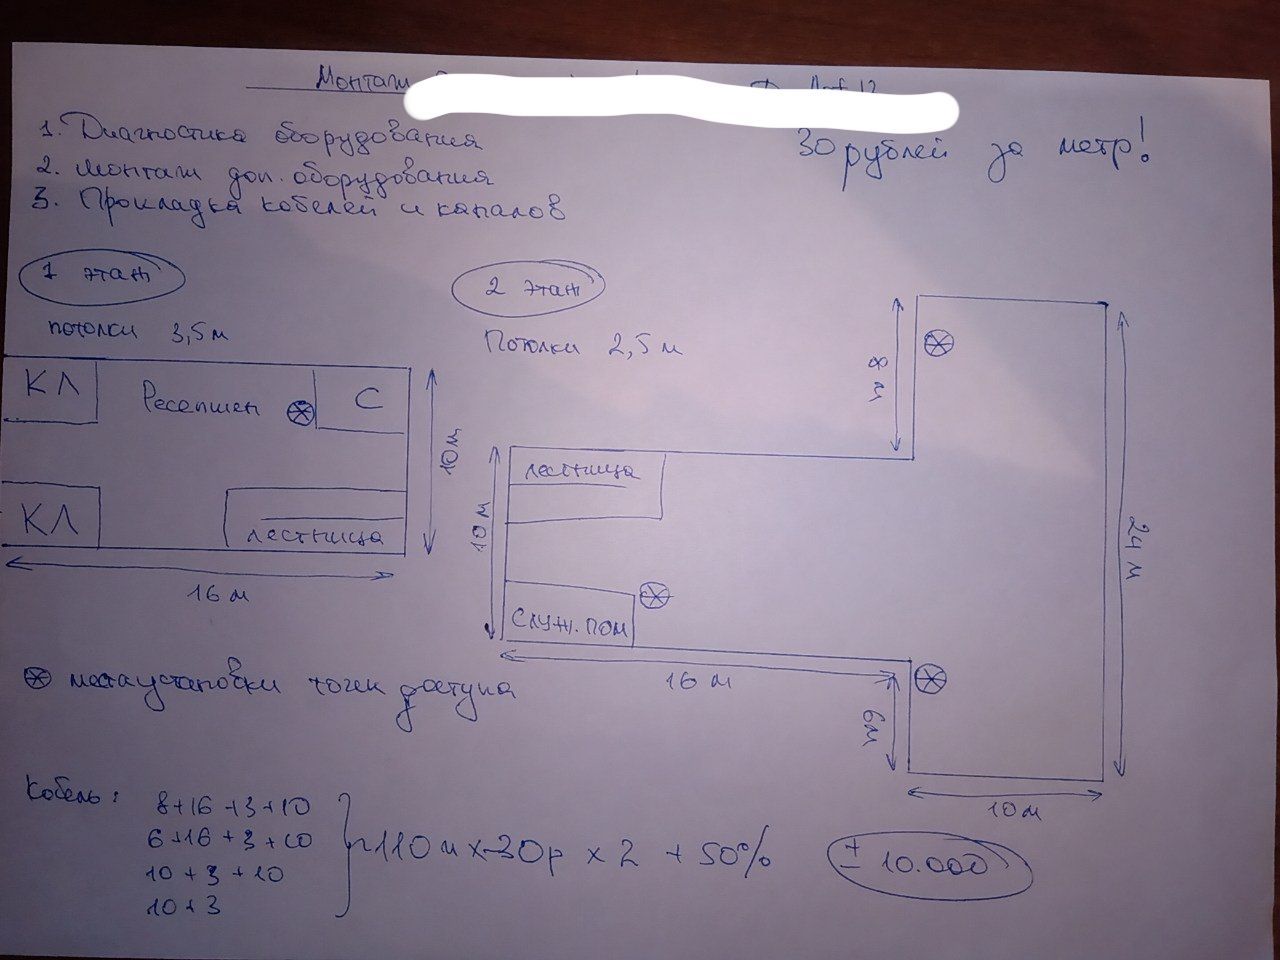 Монтаж
30 рублей за метр!
1. Диагностика оборудования
2. Монтаж доп. оборудования
3. Прокладка кобелей и каналов
1 этаж
потолки 3,5 м
КЛ
Ресепшен
С
КЛ
лестница
10 м
16 м
2 этаж
Потолки 2,5 м
8 м
лестница
10 м
24 м
Служ. пом
16 м
6 м
10 м
места установки точек доступа
Кобель:
8+16+3+10
6+16+3+10
10+3+10
10+3
~110 м х 30р х 2 + 50%
± 10.000